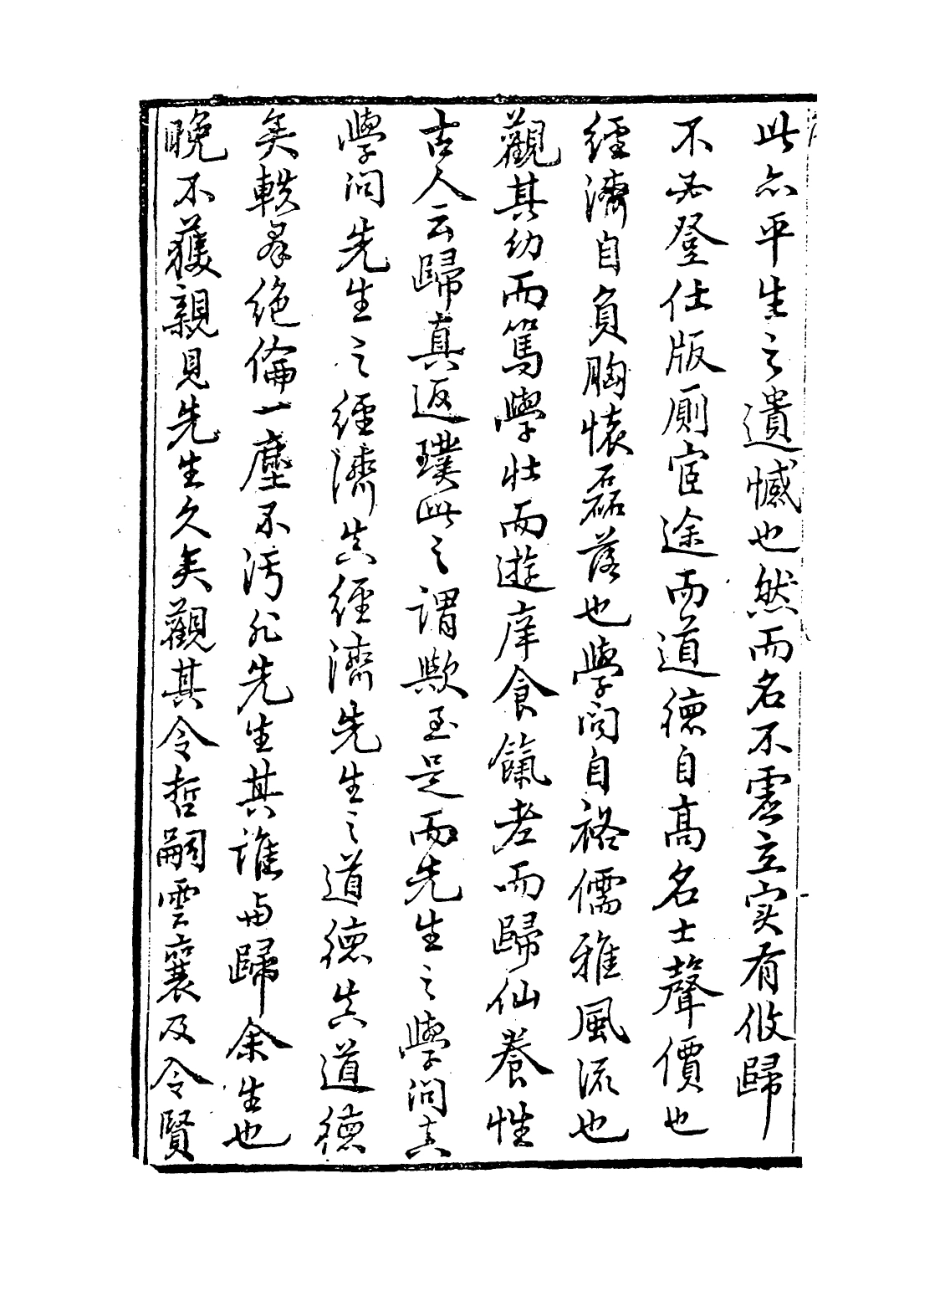 此亦平生之遺憾也然而名不虛立实有攸歸
不必登仕版厠宦途而道德自高名士聲價也
經濟自負胸懷磊落也學问自裕儒雅風流也
觀其幼而篤學壯而遊庠食餼老而歸仙養性
古人云歸真返璞此之謂歟至是而先生之學问真
學问先生之經濟真經濟先生之道德真道德
矣軼羣絶倫一塵不污非先生其誰與歸余生也
晚不獲親見先生久矣觀其令哲嗣雲襄及令賢